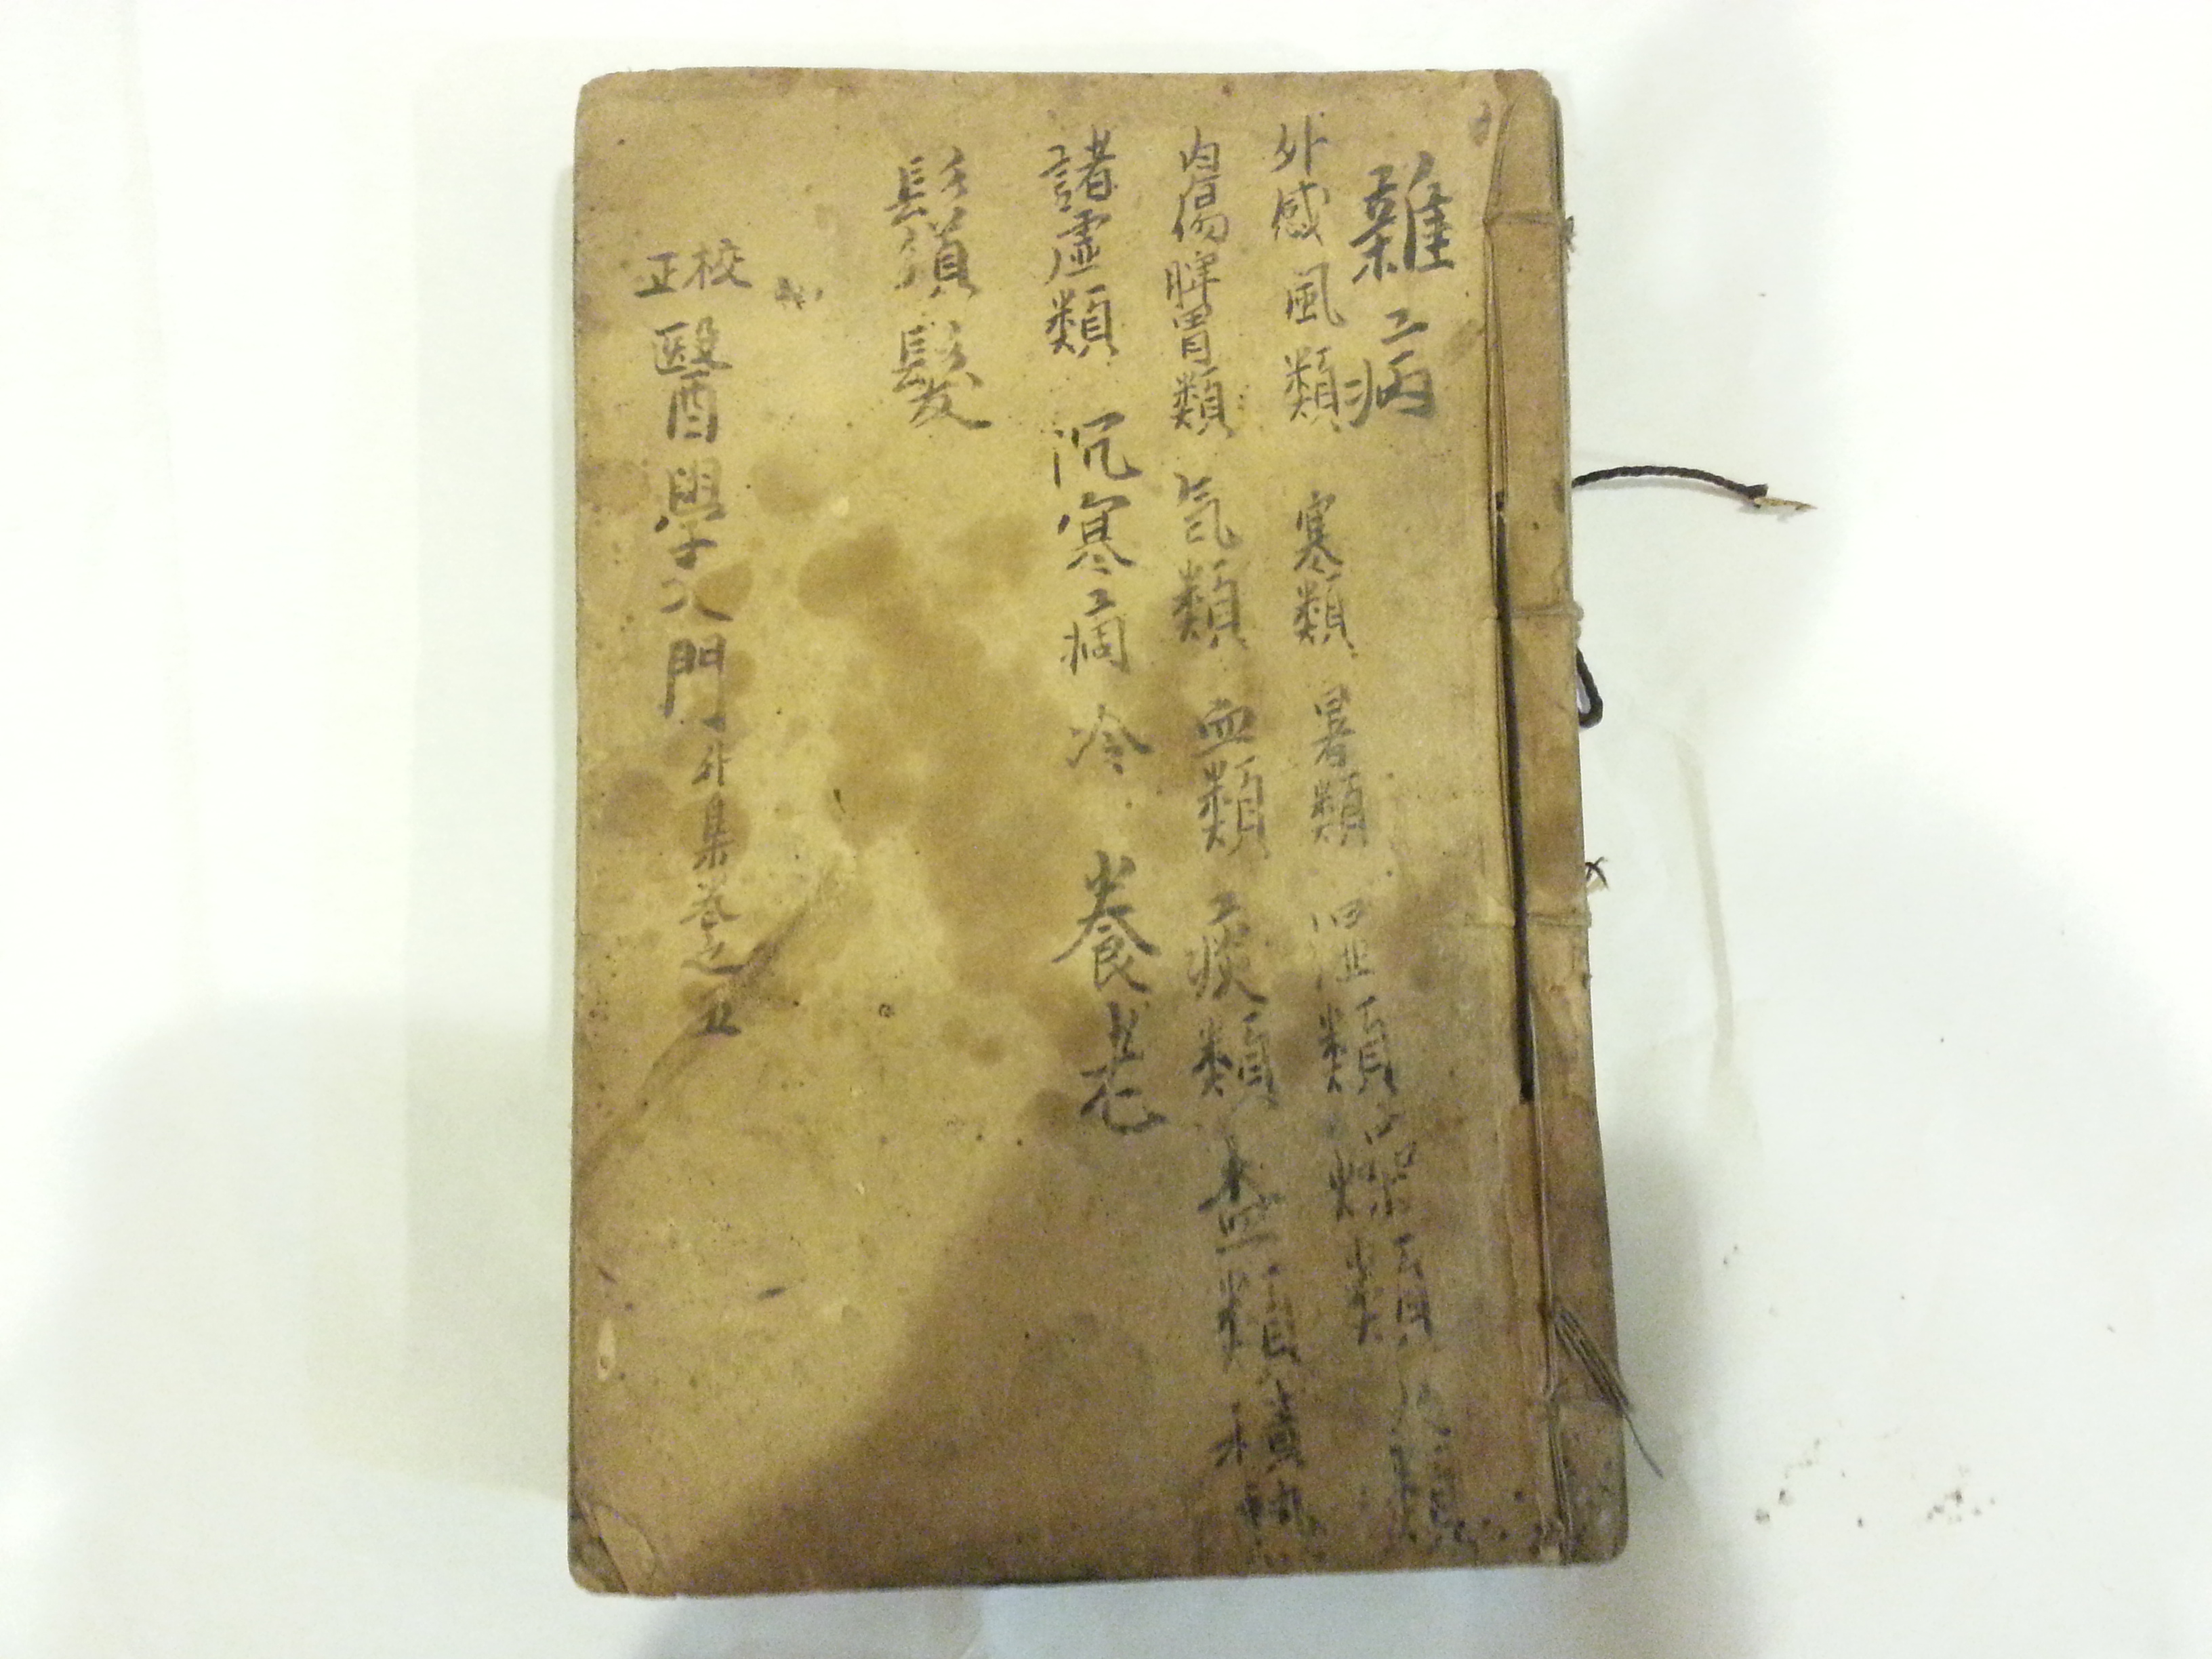 雜病
外感 風類 寒類 暑類 湿類 燥類 火類
內傷脾胃類 気類 血類 痰類 盍類 積熱
諸虛類 沉寒痼冷 養老
鬚髮
校正
醫學入門外集卷之五